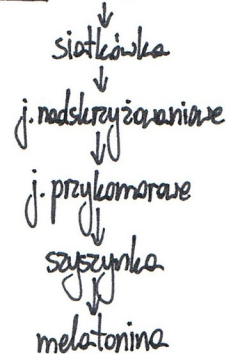 siatkówka
j. nadskrzyżowaniowe
j. przykomorowe
szyszynka
melatonina